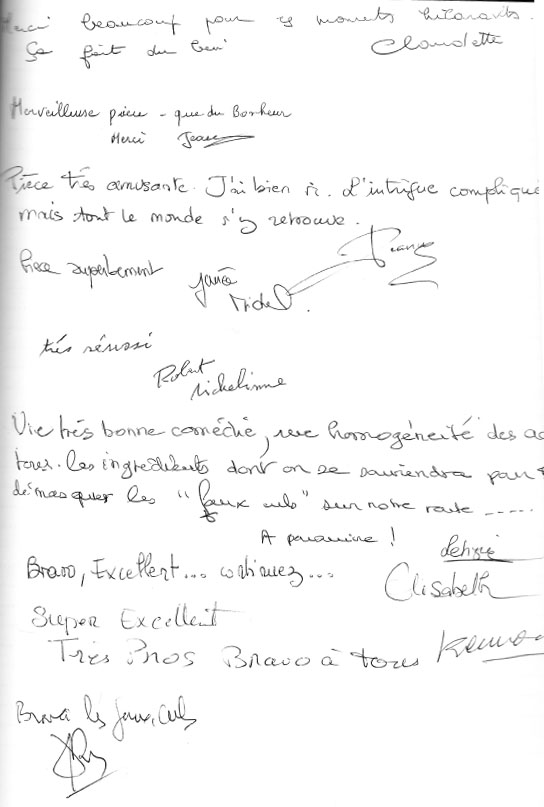 Merci beaucoup pour ces moments hilarants.
Ça fait du bien Claudette
Merveilleuse pièce - que du Bonheur
Merci Jean
Pièce très amusante. J'ai bien ri. L'intrigue compliqué
mais tout le monde s'y retrouve.
Pièce superbement jouée
Michel
très réussi
Robert
Micheline
Une très bonne comédie, une homogénéité des ac
teurs. Les ingrédients dont on se souviendra pour
démasquer les "faux culs" sur notre route .....
A panamine !
Bravo, Excellent... continuez...
Elisabeth
Super Excellent
Très Pros Bravo à tous
Bravo les faux, culs